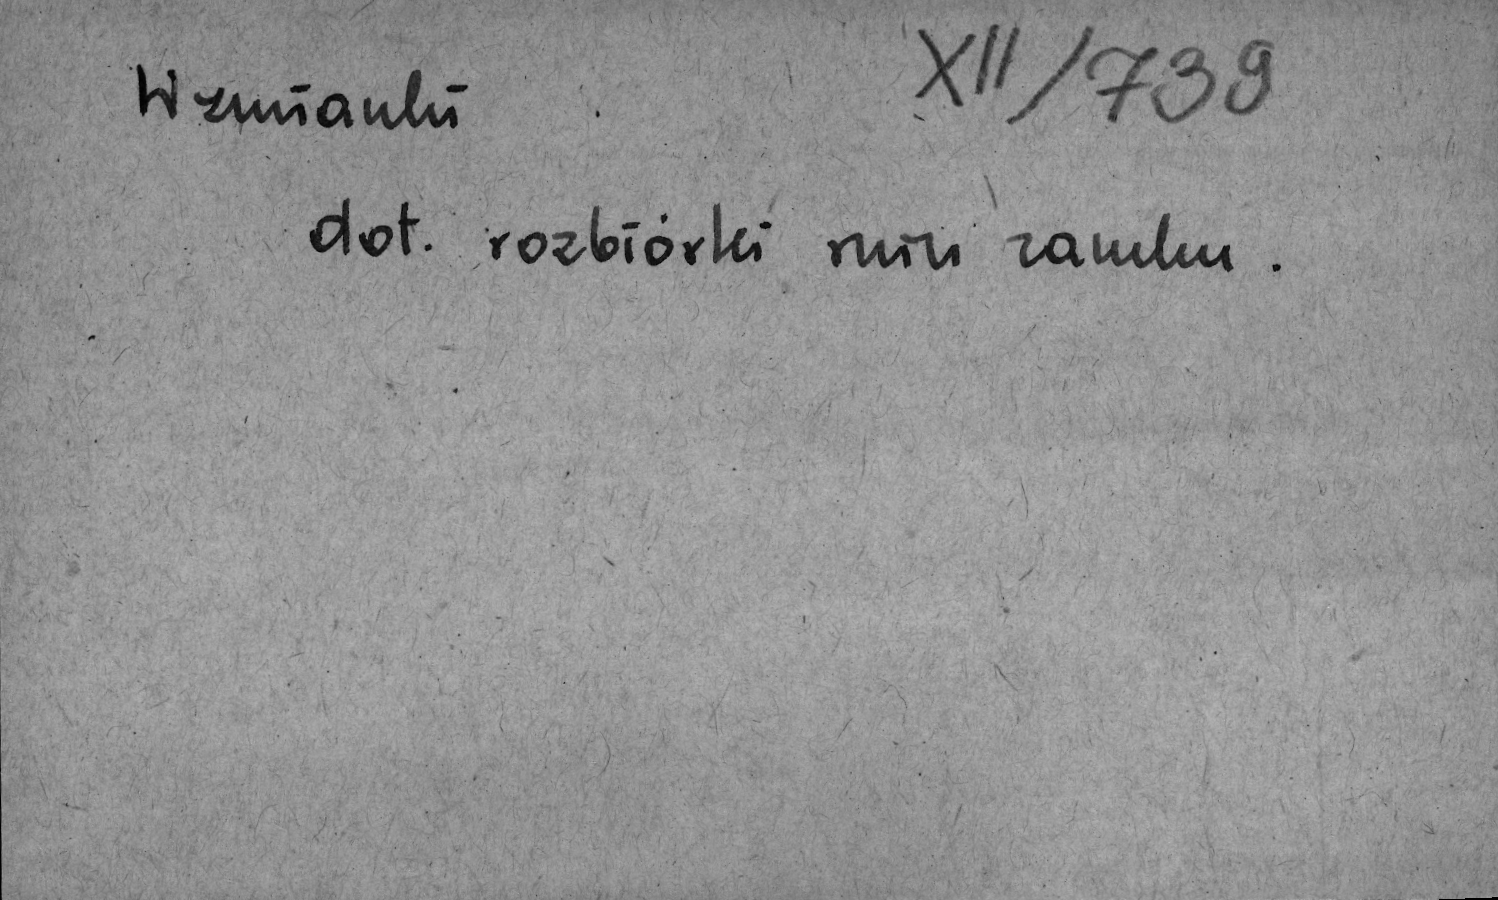 Wzmianki XII/739
dot. rozbiórki ruin zamku.